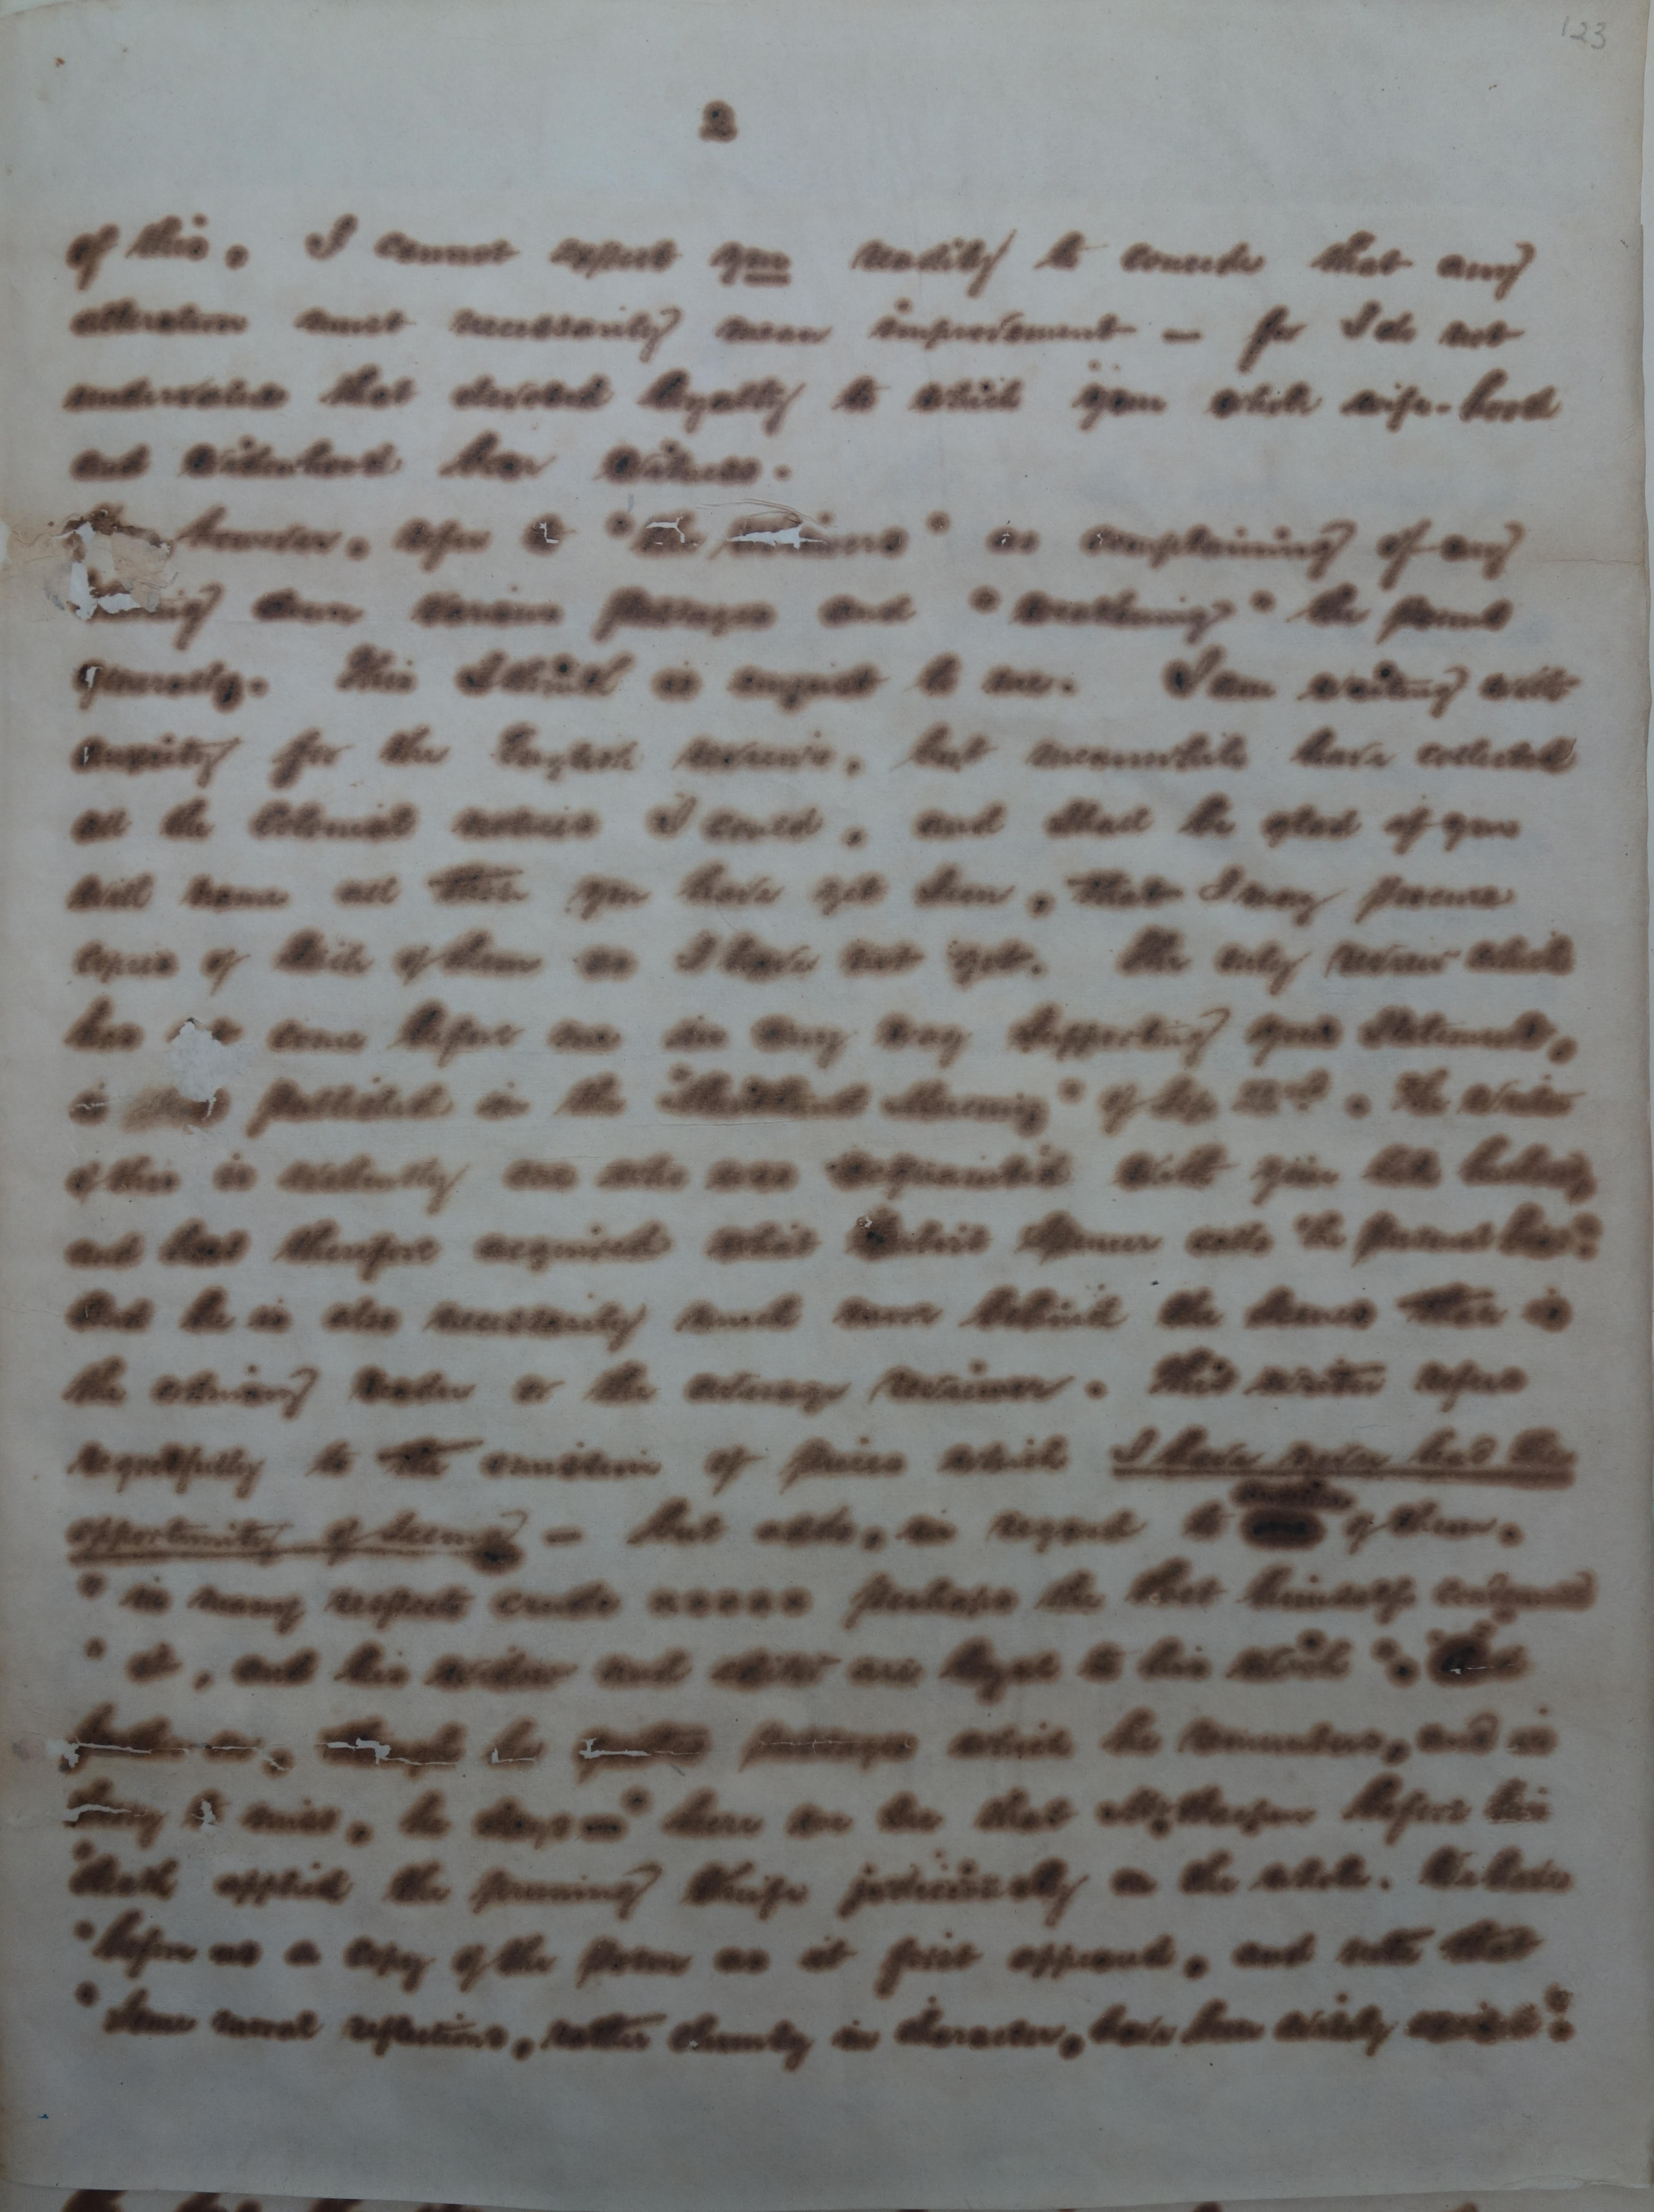 123
2
of this. I cannot expect you readily to concede that any
alteration must necessarily mean improvement — for I do not
undervalue that devoted loyalty to which your whole wife-hood
and widowhood bear witness.
however, refer to "the reviewers" as complaining of my
down various passages and "weakening" the poems
generally. This I think is unjust to me. I am waiting with
anxiety for the English reviews, but meanwhile have collected
all the Colonial notices I could, and shall be glad if you
will name all those you have yet seen, that I may procure
copies of such of them as I have not got. The only review which
has come before me in any way supporting your statement,
is published in the " Mercury" of Sep 22nd. The writer
of this is evidently one who was acquainted with your late husband,
and has therefore acquired what Herbert Spencer calls "the personal bias".
And he is also necessarily much more behind the scenes than is
the ordinary reader or the average reviewer. This writer refers
regretfully to the omission of pieces which I have never had the
opportunity of seeing — but adds, in regard to another of them,
"in many respects crude xxxxx perhaps the poet himself condemned
"it, and his widow and editor are loyal to his wish".
, though he quotes passages which he remembers, and is
sorry to miss, he says — "here we see that before his
"death applied the pruning knife judiciously on the whole. We have
"before us a copy of the poem as it first appeared, and note that
"some moral reflections, rather clumsy in character, have been wisely